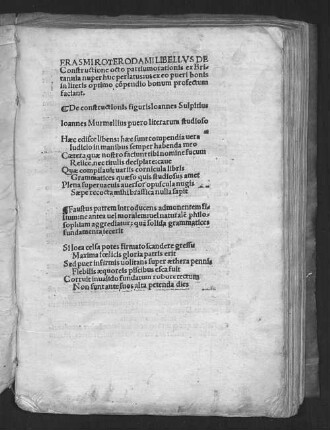 ERASMI ROTERODAMI LIBELLVS DE
Constructione octo partium orationis ex Bri-
tannia nuper huc perlatus: vt ex eo pueri bonis
in literis optimo cōpendio bonum profectum
faciant.
¶ De constructionis figuris Ioannes Sulpitius
Ioannes Murmellius puero literarum studioso
Hæc edisce libens: hæc sunt compendia vera
Iudicio in manibus semper habenda meo
Cætera quæ nostro facturi tibi nomine fucum
Relice, nec tineulis
Quæ compilauit variis cornicula libris
Grammatices quæso quis studiosus amet
Plena superuacuis auersor opuscula nugis
Sæpe recocta mihi brassica nulla sapit
¶ Faustus patrem introducens admonentem fi-
lium ne ante vel moralem vel naturalē philo-
sophiam aggrediatur: quā solida grammatices
fundamenta iecerit
Si loca celsa potes firmato scandere gressu
Maxima fœlicis gloria patris erit
Sed puer infirmis uolitans super æthera pennis
Flebilis æquoreis piscibus esca fuit
Corruit inualido fundatum robore tectum
Non sunt ante suos alta petenda dies